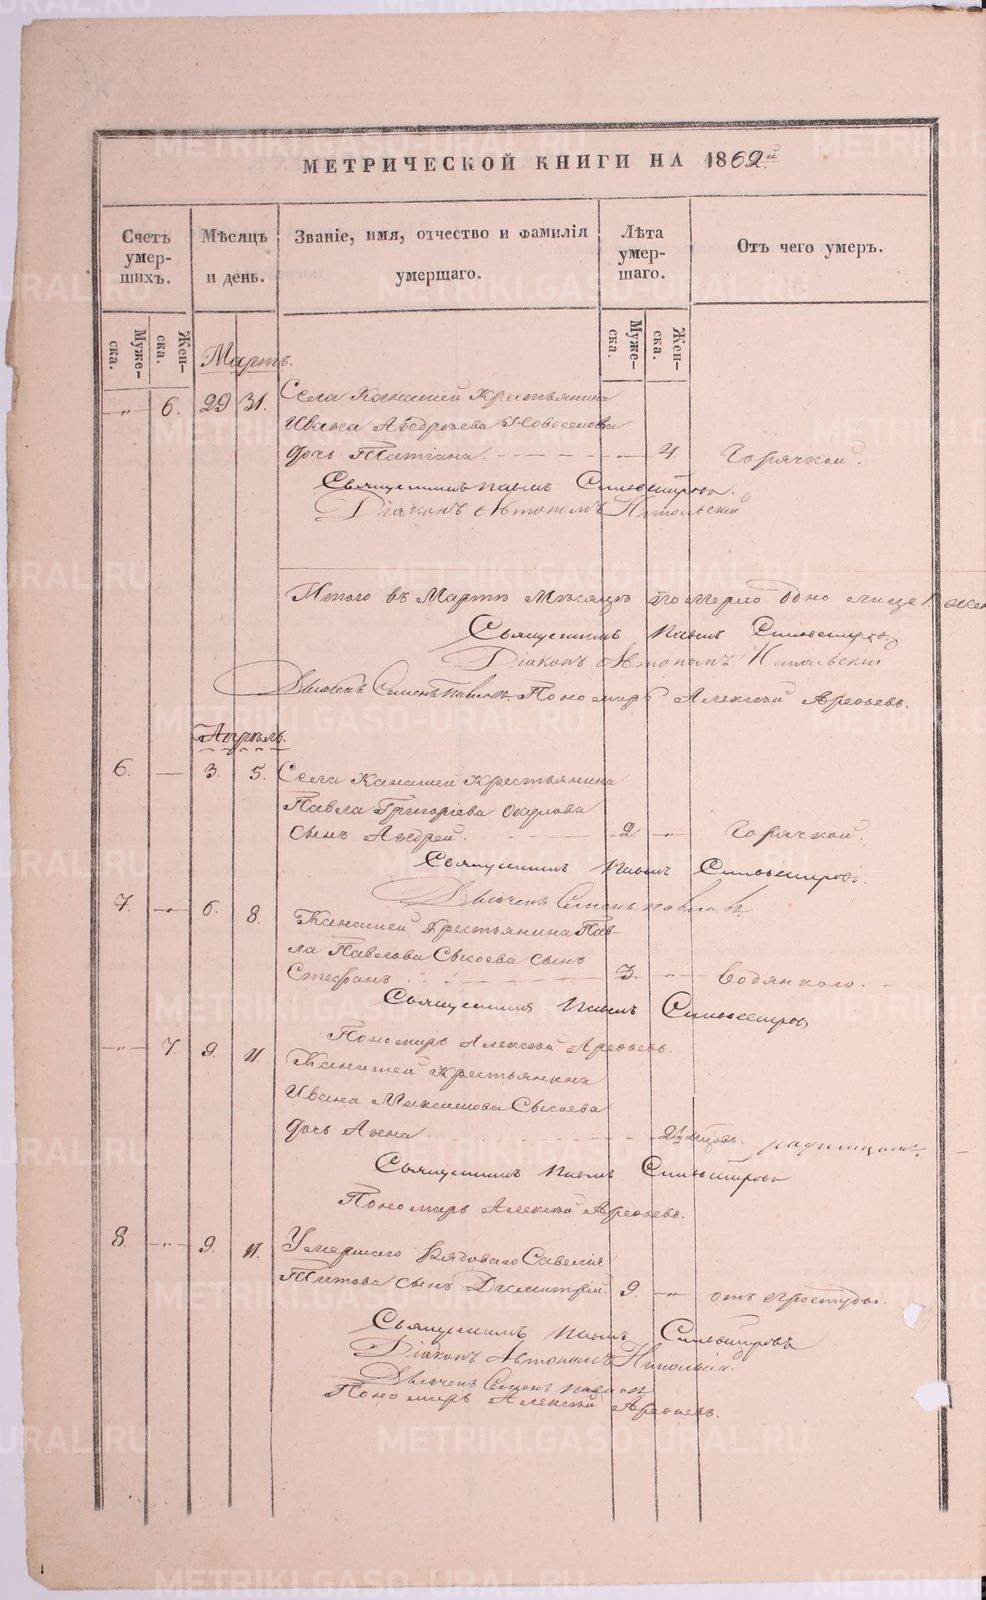 МЕТРИЧЕСКОЙ КНИГИ НА 1862й
Счетъ умер-шихъ.
Мѣсяцъ и день.
Званіе, имя, отчество и фамилія умершаго.
Лѣта умер-шаго.
Отъ чего умеръ.
Муже-ска.
Жен-ска.
Муже-ска.
Жен-ска.
Мартъ.
„ 6. 29 31. Села Канашей Крестьянина
Ивана Андреева Новоселова
дочь Татіана. 4. Горячкой.
Священникъ Павелъ Сильвестровъ.
Діаконъ Автономъ Никольскій
Итого въ Мартѣ Мѣсяцѣ померло одно лице
Священникъ Павелъ Сильвестровъ
Діаконъ Автономъ Никольскій
Дьячекъ Семенъ Павловъ. Пономарь Алексѣй Арефьевъ.
Апрѣль.
6. — 3. 5. Села Канашей Крестьянина
Павла Григоріева
сынъ Андрей. 2. „ Горячкой.
Священникъ Павелъ Сильвестровъ.
Дьячекъ Семенъ Павловъ
7. „ 6. 8. Канашей Крестьянина Пав-
ла Павлова Сысоева сынъ
Стефанъ 3. „ водянкою.
Священникъ Павелъ Сильвестровъ
Пономарь Алексѣй Арефьевъ.
„ 7. 9. 11. Канашей Крестьянина
Ивана Максимова Сысоева
дочь Анна.
Священникъ Павелъ Сильвестровъ
Пономарь Алексѣй Арефьевъ.
8. „ 9. 11. Умершаго Рядоваго Савелія
Титова сынъ Димитрій. 9. „ отъ простуды.
Священникъ Павелъ Сильвестровъ
Діаконъ Автономъ Никольскій.
Дьячекъ Семенъ Павловъ
Пономарь Алексѣй Арефьевъ.
METRIKI.GASO-URAL.RU